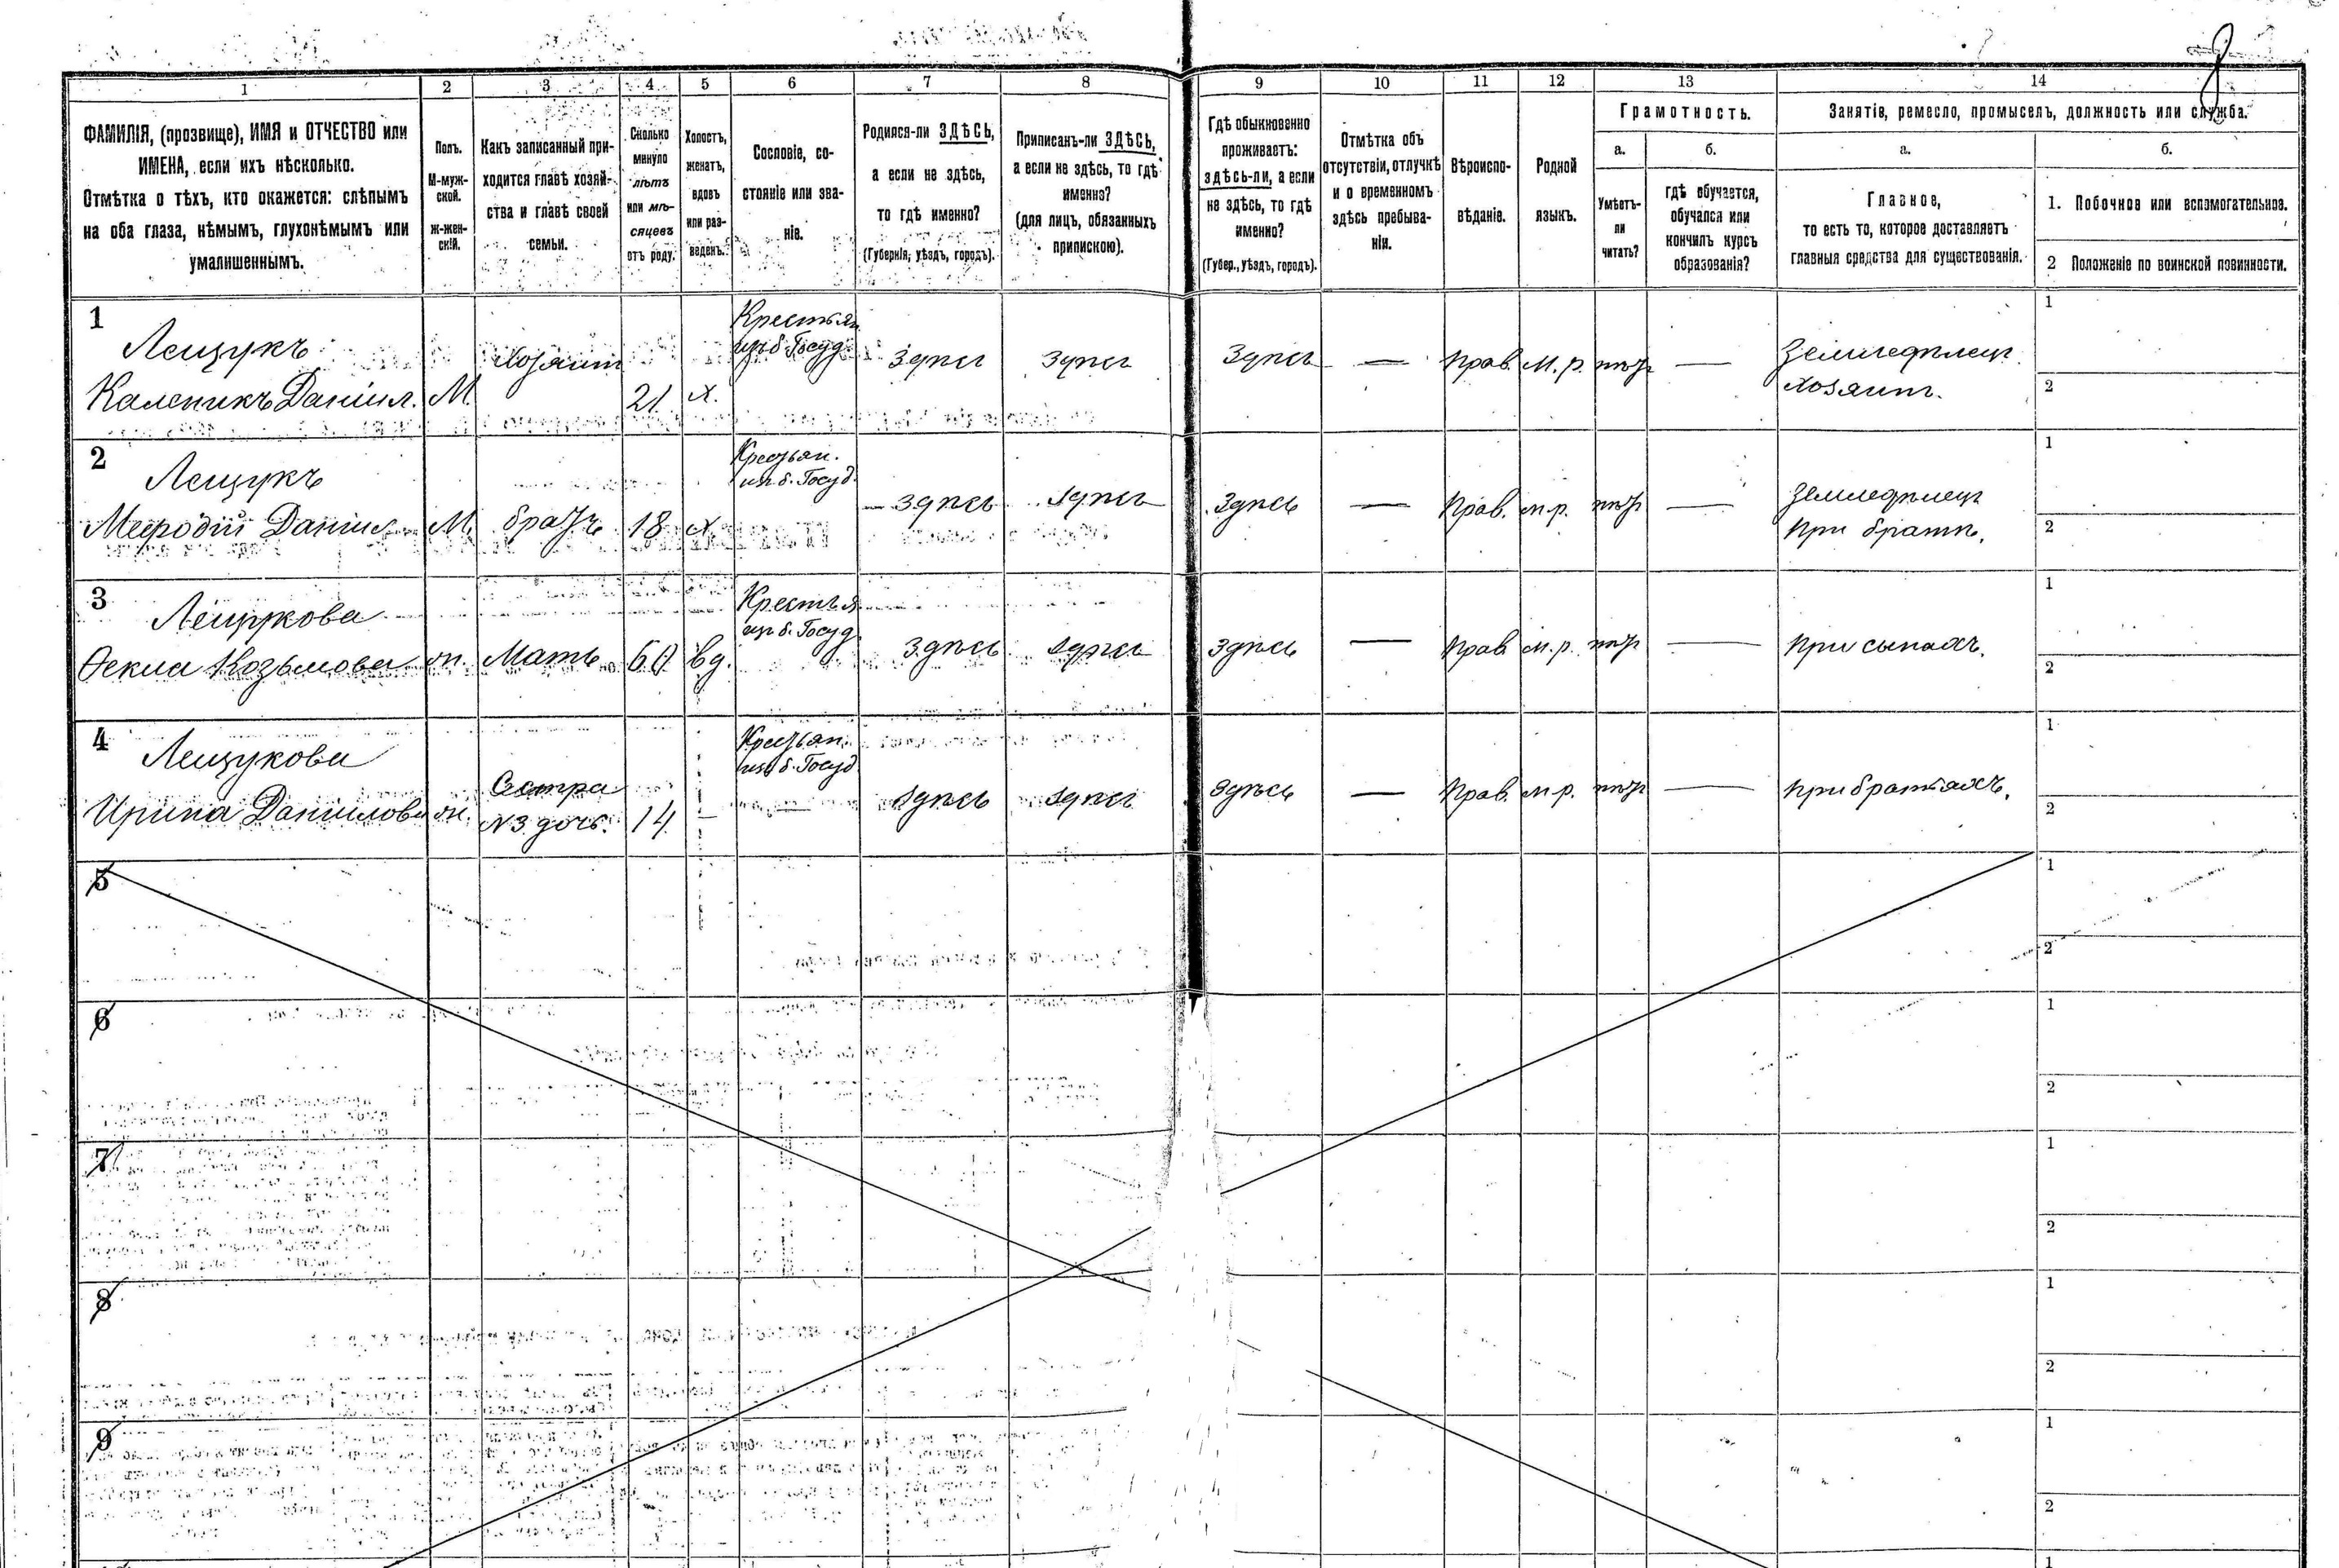 8
1 2 3 4 5 6 7 8 9 10 11 12 13 14
ФАМИЛІЯ, (прозвище), ИМЯ и ОТЧЕСТВО или
ИМЕНА, если ихъ нѣсколько.
Отмѣтка о тѣхъ, кто окажется: слѣпымъ
на оба глаза, нѣмымъ, глухонѣмымъ или
умалишеннымъ.
Полъ.
М-муж-
ской.
ж-жен-
скій.
Какъ записанный при-
ходится главѣ хозяй-
ства и главѣ своей
семьи.
Сколько
минуло
лѣтъ
или мѣ-
сяцевъ
отъ роду.
Холостъ,
женатъ,
вдовъ
или раз-
веденъ.
Сословіе, со-
стояніе или зва-
ніе.
Родился-ли ЗДѢСЬ,
а если не здѣсь,
то гдѣ именно?
(Губернія, уѣздъ, городъ).
Приписанъ-ли ЗДѢСЬ,
а если не здѣсь, то гдѣ
именно?
(для лицъ, обязанныхъ
припискою).
Гдѣ обыкновенно
проживаетъ:
здѣсь-ли, а если
не здѣсь, то гдѣ
именно?
(Губер., уѣздъ, городъ).
Отмѣтка объ
отсутствіи, отлучкѣ
и о временномъ
здѣсь пребыва-
ніи.
Вѣроиспо-
вѣданіе.
Родной
языкъ.
Грамотность.
а.
Умѣетъ-
ли
читать?
б.
гдѣ обучается,
обучался или
кончилъ курсъ
образованія?
Занятіе, ремесло, промыселъ, должность или служба.
а.
Главное,
то есть то, которое доставляетъ
главныя средства для существованія.
б.
1. Побочное или вспомогательное.
2 Положеніе по воинской повинности.
1
Лещукъ
Каленикъ Даніил. М. Хозяинъ 21 х.
Крестьян
изъ б. Госуд.
Здѣсь Здѣсь Здѣсь — Прав. М. р. нѣтъ —
Земледѣлец
Хозяинъ.
1
2
2
Лещукъ
Меѳодій Даніил. М братъ 18 х
Крестьян.
из б. Госуд.
Здѣсь Здѣсь Здѣсь — Прав. м. р. нѣтъ —
Земледѣлец
При братѣ.
1
2
3
Лещукова
Ѳекла Козьмова ж. Мать 60 вд.
Крестья
из б. Госуд.
Здѣсь Здѣсь Здѣсь — Прав М. р. нѣтъ —
При сынахъ.
1
2
4
Лещукова
Ирина Данилова ж. Сестра
N3 дочь. 14 —
Крестьян.
из б. Госуд.
Здѣсь Здѣсь Здѣсь — Прав. м. р. нѣтъ —
При братьяхъ.
1
2
5
1
2
6
1
2
7
1
2
8
1
2
9
1
2
1